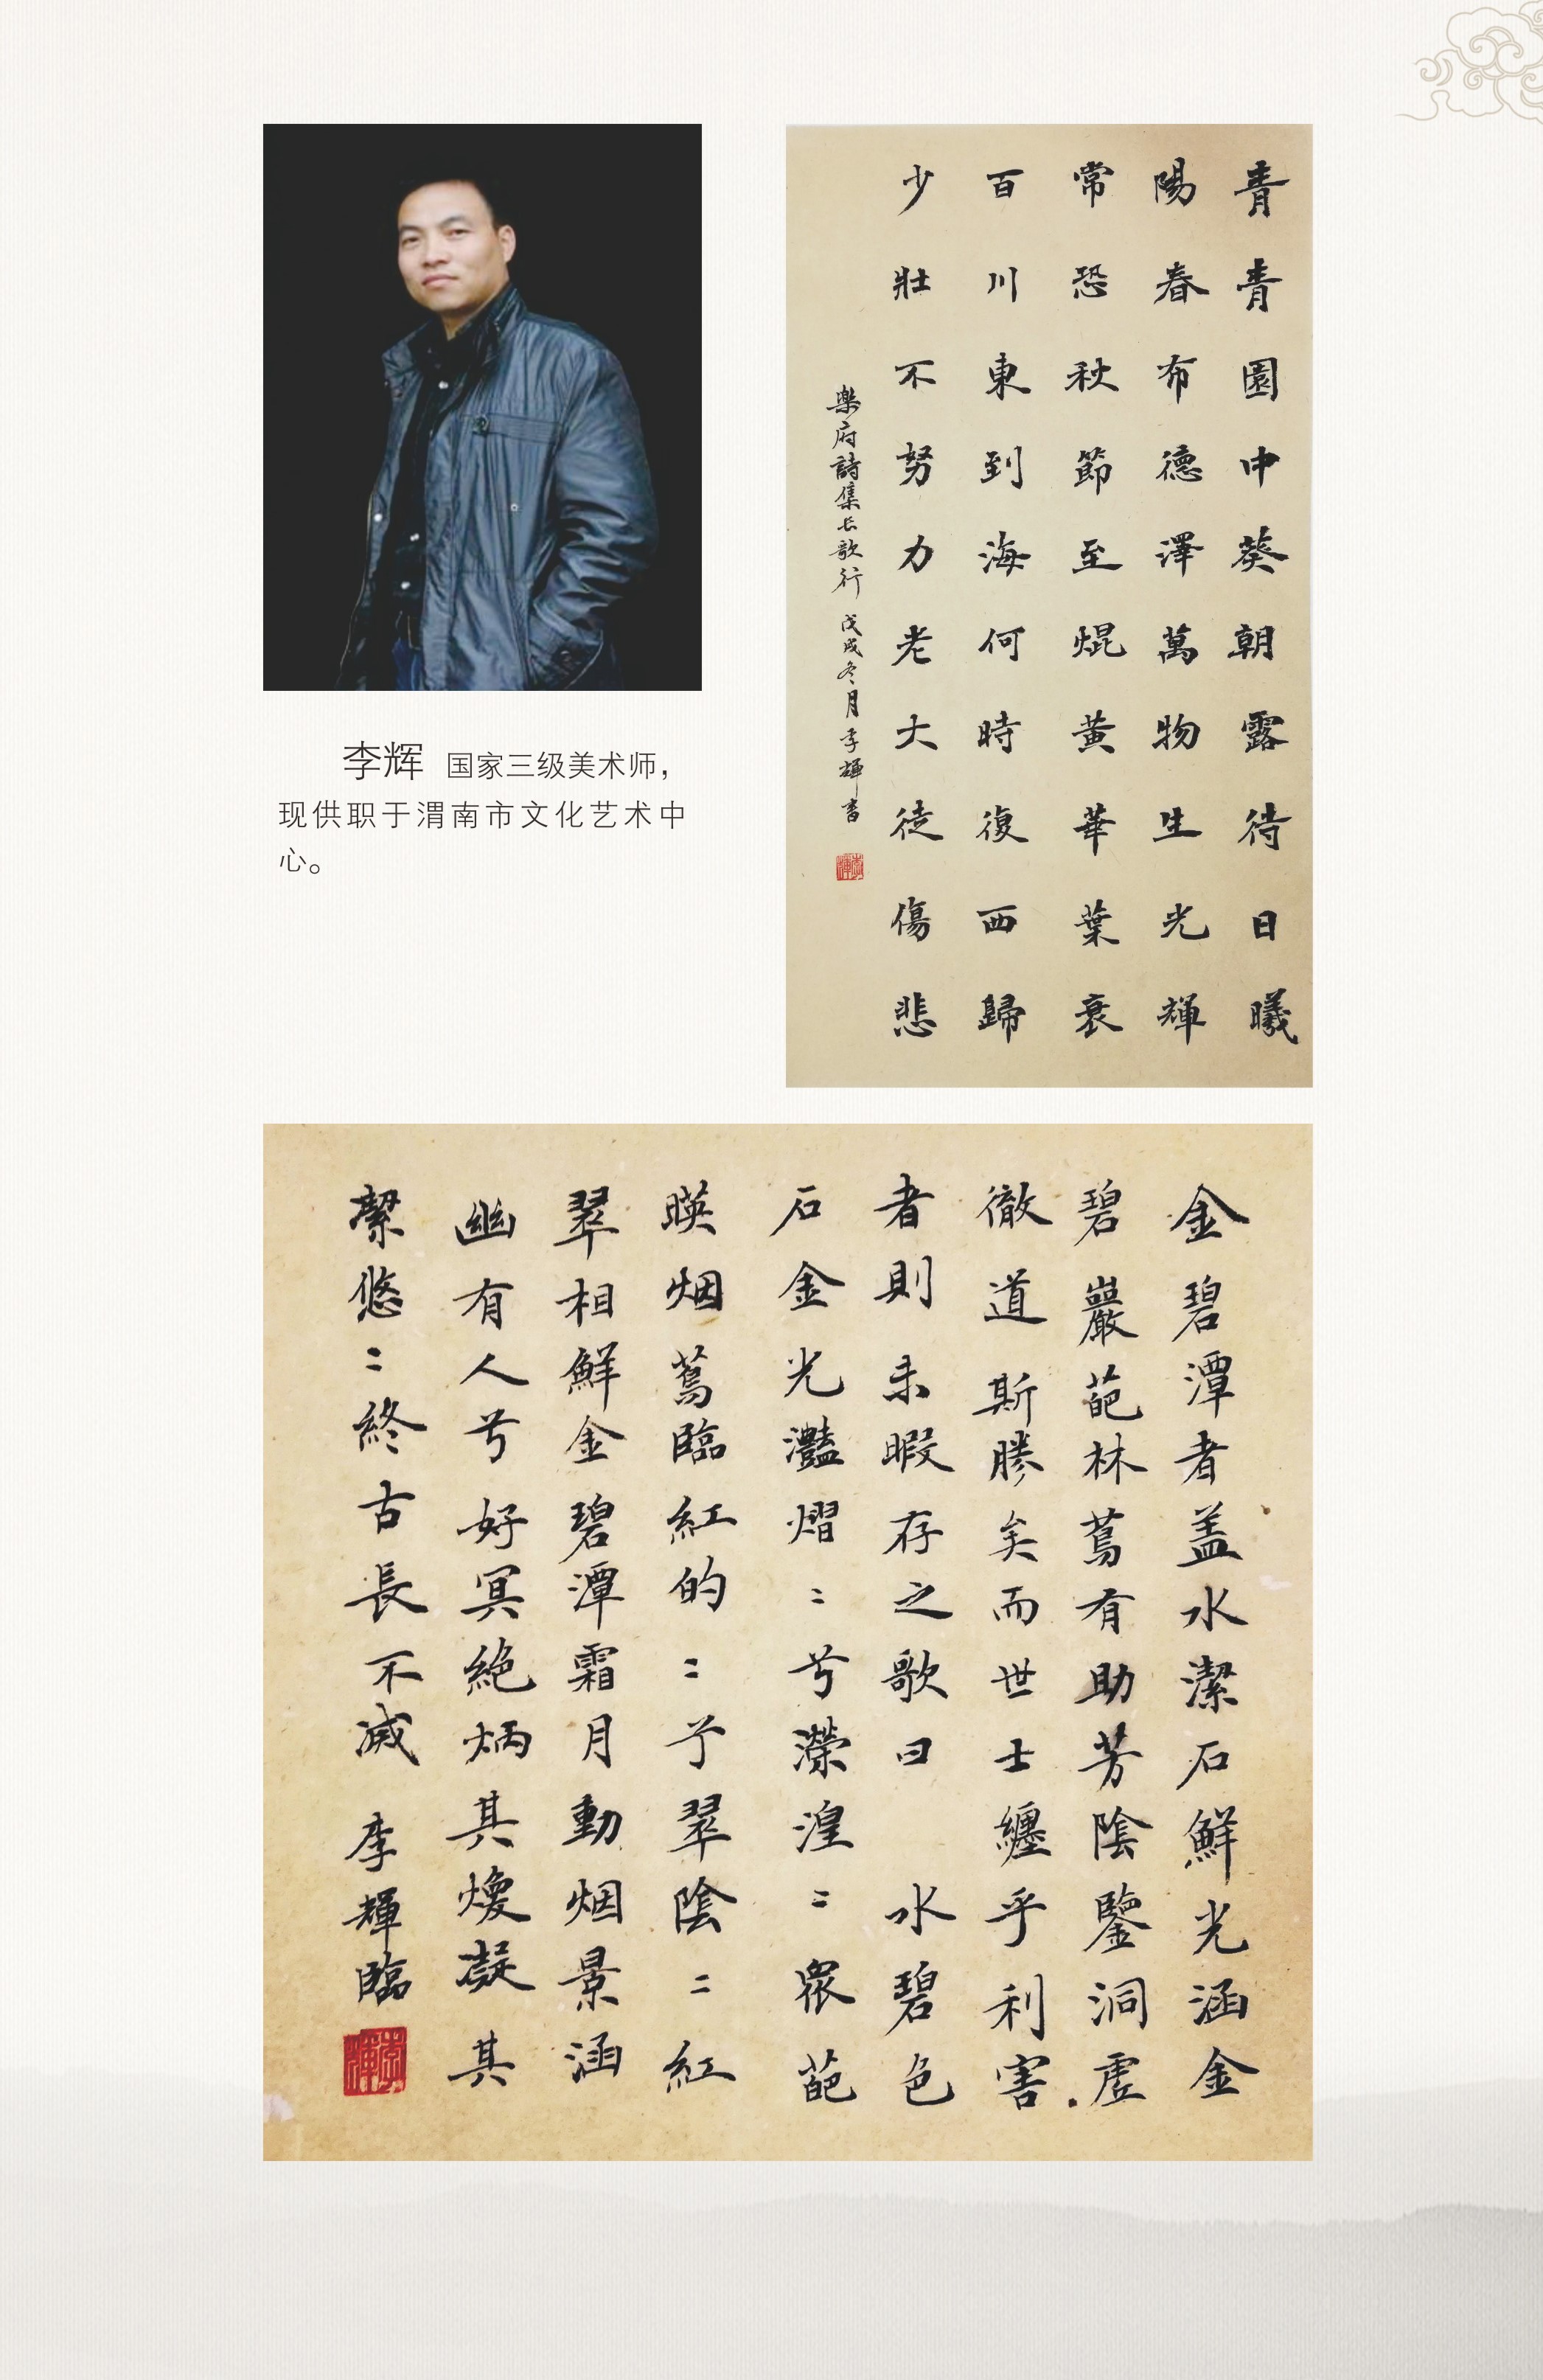 李辉 国家三级美术师，
现供职于渭南市文化艺术中
心。
青青園中葵朝露待日曦
陽春布德澤萬物生光輝
常恐秋節至焜黃華葉衰
百川東到海何時復西歸
少壯不努力老大徒傷悲
樂府詩集长歌行 戊戌冬月李輝書
李輝
金碧潭者盖水潔石鮮光涵金
碧巖葩林蔦有助芳陰鑒洞虛
徹道斯勝矣而世士纏乎利害
者則未暇存之歌曰 水碧色
石金光灩熠〻兮濴湟〻眾葩
暎烟蔦臨紅的〻兮翠陰〻紅
翠相鮮金碧潭霜月動烟景涵
幽有人兮好冥絶炳其煥凝其
潔悠〻終古長不滅 李輝臨
李輝